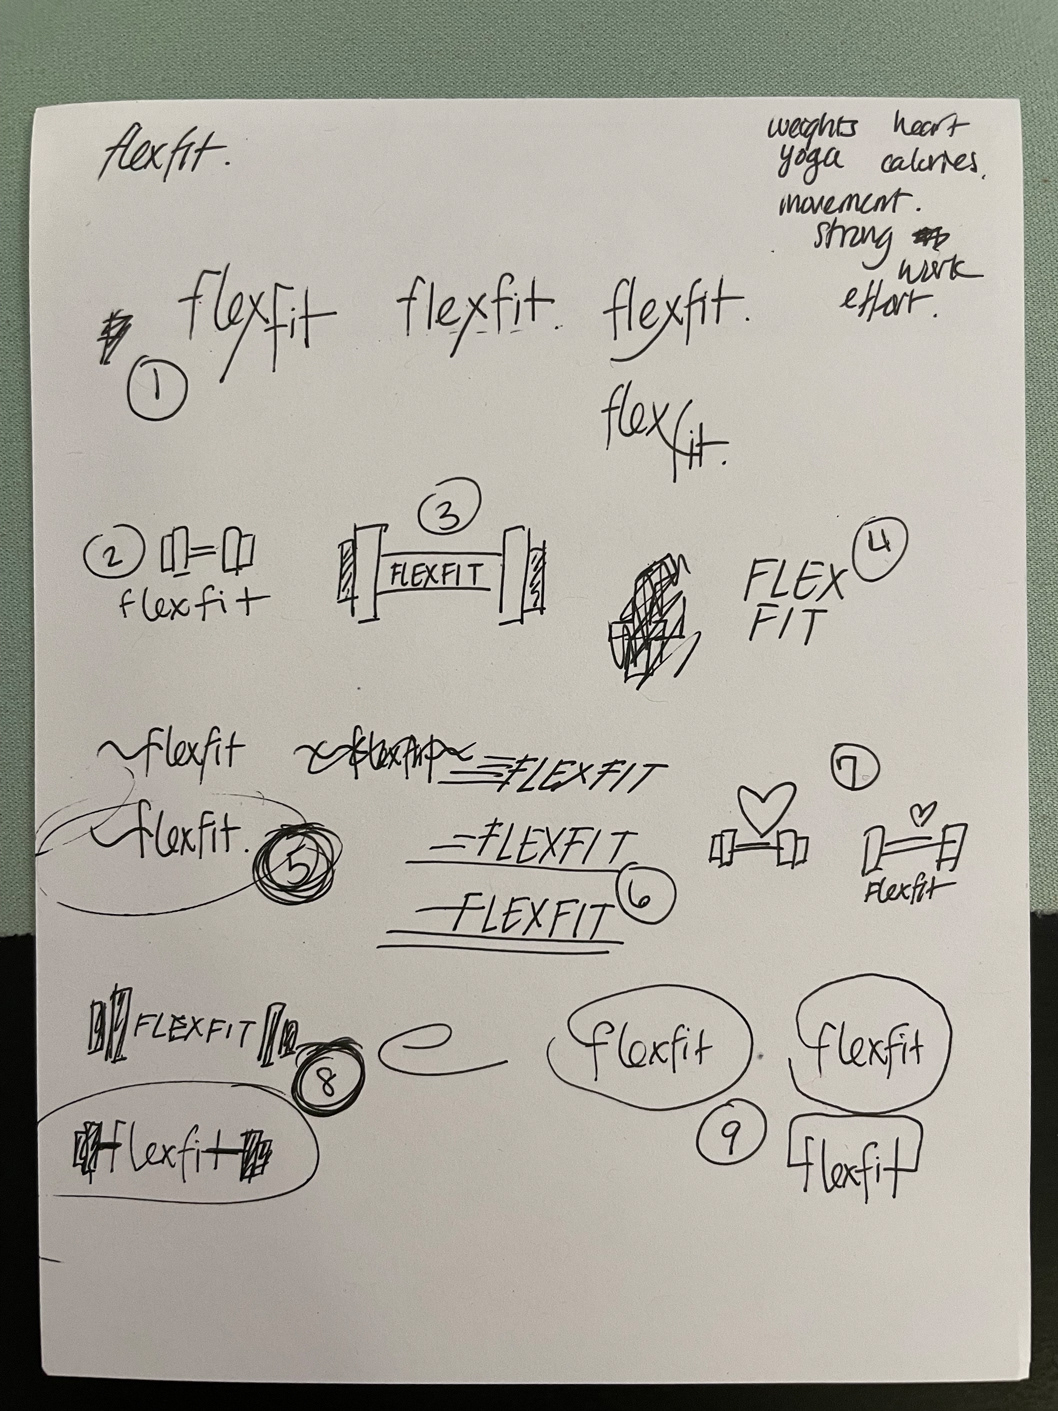 flexfit.
weights heart
yoga calories.
movement.
strong
work
effort.
flexfit flexfit. flexfit.
1
flex
fit.
3
2
flexfit
FLEXFIT
4
FLEX
FIT
flexfit
FLEXFIT
7
flexfit.
5
FLEXFIT
6
FLEXFIT
Flexfit
FLEXFIT
8
flexfit flexfit
flexfit
9
flexfit